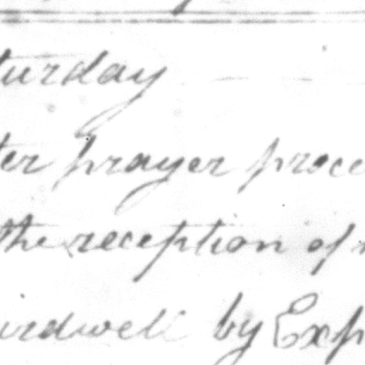 turday
ter prayer proce
the reception of
irdwell by Exp